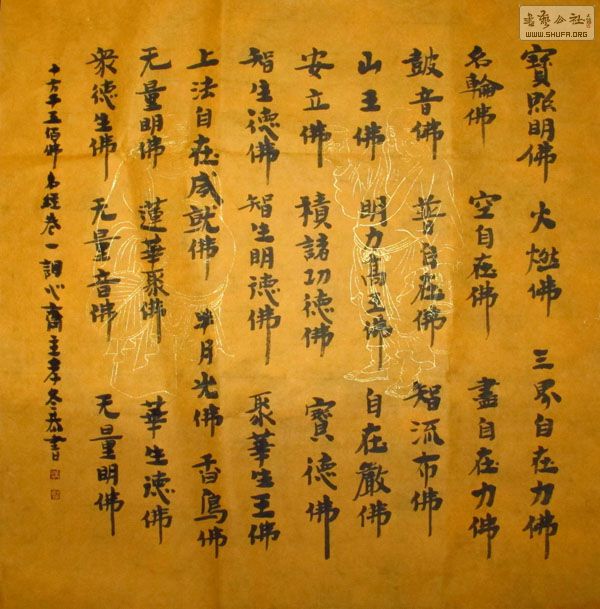 書藝公社
WWW.SHUFA.ORG
寶照明佛 火燃佛 三界自在力佛
名輪佛 空自在佛 盡自在力佛
鼓音佛 普自在佛 智流布佛
山王佛 明力高王佛 自在嚴佛
安立佛 積諸功德佛 寶德佛
智生德佛 智生明德佛 聚華生王佛
上法自在成就佛 半月光佛 香佛
无量明佛 蓮華聚佛 華生德佛
衆德生佛 无量音佛 无量明佛
十方千五佰佛名經卷一調心齋主李冬恭書